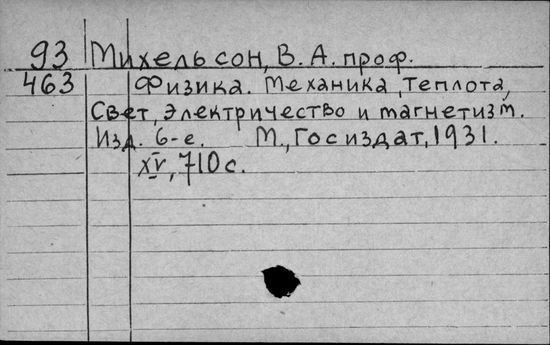 93 Михельсон, В. А. проф.
463 Физика. Механика, Теплота,
Свет, электричество и магнетизм.
Изд. 6-е. М., Госиздат, 1931.
XV, 710 с.